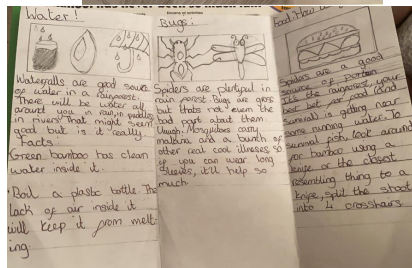 Water!
Watergalls are good source
of water in a rainforest.
There will be water all
around you in rain, in puddles
in rivers. That might seem
good but is it really.
Facts:
Green bamboo has clean
water inside it.
Boil a plastic bottle. The
lack of air inside it
will keep it from melt-
ing.
Bugs:
Spiders are plentiful in
rain forest. Bugs are gross
but thats not even the
bad part about them.
Mosquitoes carry
malaria and a bunch of
other real cool illnesses, so
if you can wear long
sleeves, it'll help so
much.
Food: How
Spiders are a good
source of
It's the rainforest, your
best bet for food and
survival is getting near
some running water. To
look around
for bamboo using a
knife or the closet
resembling thing to a
knife, split the shoot
into 4 crosshairs